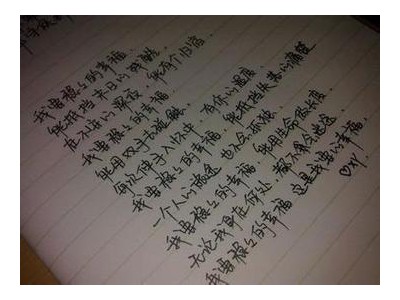 我要稳稳的幸福,
能抵挡末日的残酷,
在不安的深夜,能有个归宿.
我要稳稳的幸福,
能用双手去碰触,
每次伸手入怀中,有你的温度.
我要稳稳的幸福,能抵挡失落的痛楚
一个人的路途 也不会孤独.
我要稳稳的幸福,能用生命做长度
无论我身在何处,都不会迷途
我要稳稳的幸福 这是我要的幸福.